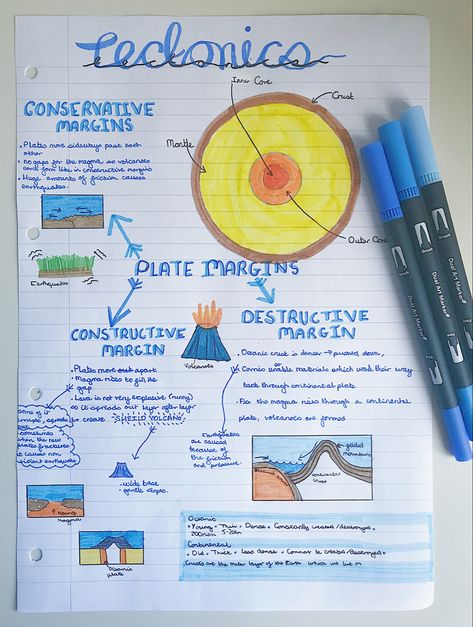 Tectonics
tectonics
Inner Core
Crust
Mantle
Outer Core
CONSERVATIVE
MARGINS
• Plates move sideways past each
other
• no gaps for the magma so volcanoes
cant form like in constructive margins
• Huge amounts of friction causes
earthquakes.
Earthquakes
PLATE MARGINS
CONSTRUCTIVE
MARGIN
• Plates move apart
• Magma rises to fill the
gap
• Lava is not very explosive (runny)
so it spreads out layer after layer
to create SHEILD VOLCANO
Some of it
sometimes
when the new
fractures
it causes non
violent earthquake
• wide base
• gentle slopes.
rising
magma
Oceanic
plate
Volcanoes
DESTRUCTIVE
MARGIN
• Oceanic crust is denser → pushed down,
materials which work their way
back through continental plate.
• As the magma rises through a continental
plate, volcanoes are formed
Earthquakes
are caused
because of
the friction
and pressure.
folded
mountains
continental
crust
Oceanic
• Young • Thin • Dense • Constantly created/destroyed
Continental
• Old • Thick • Less dense • Cannot be created/destroyed
Crusts are the outer layer of the Earth which we live on
Dual Art Marker
Brush
Dual Art Marker
Brush
Dual Art Marker
Brush